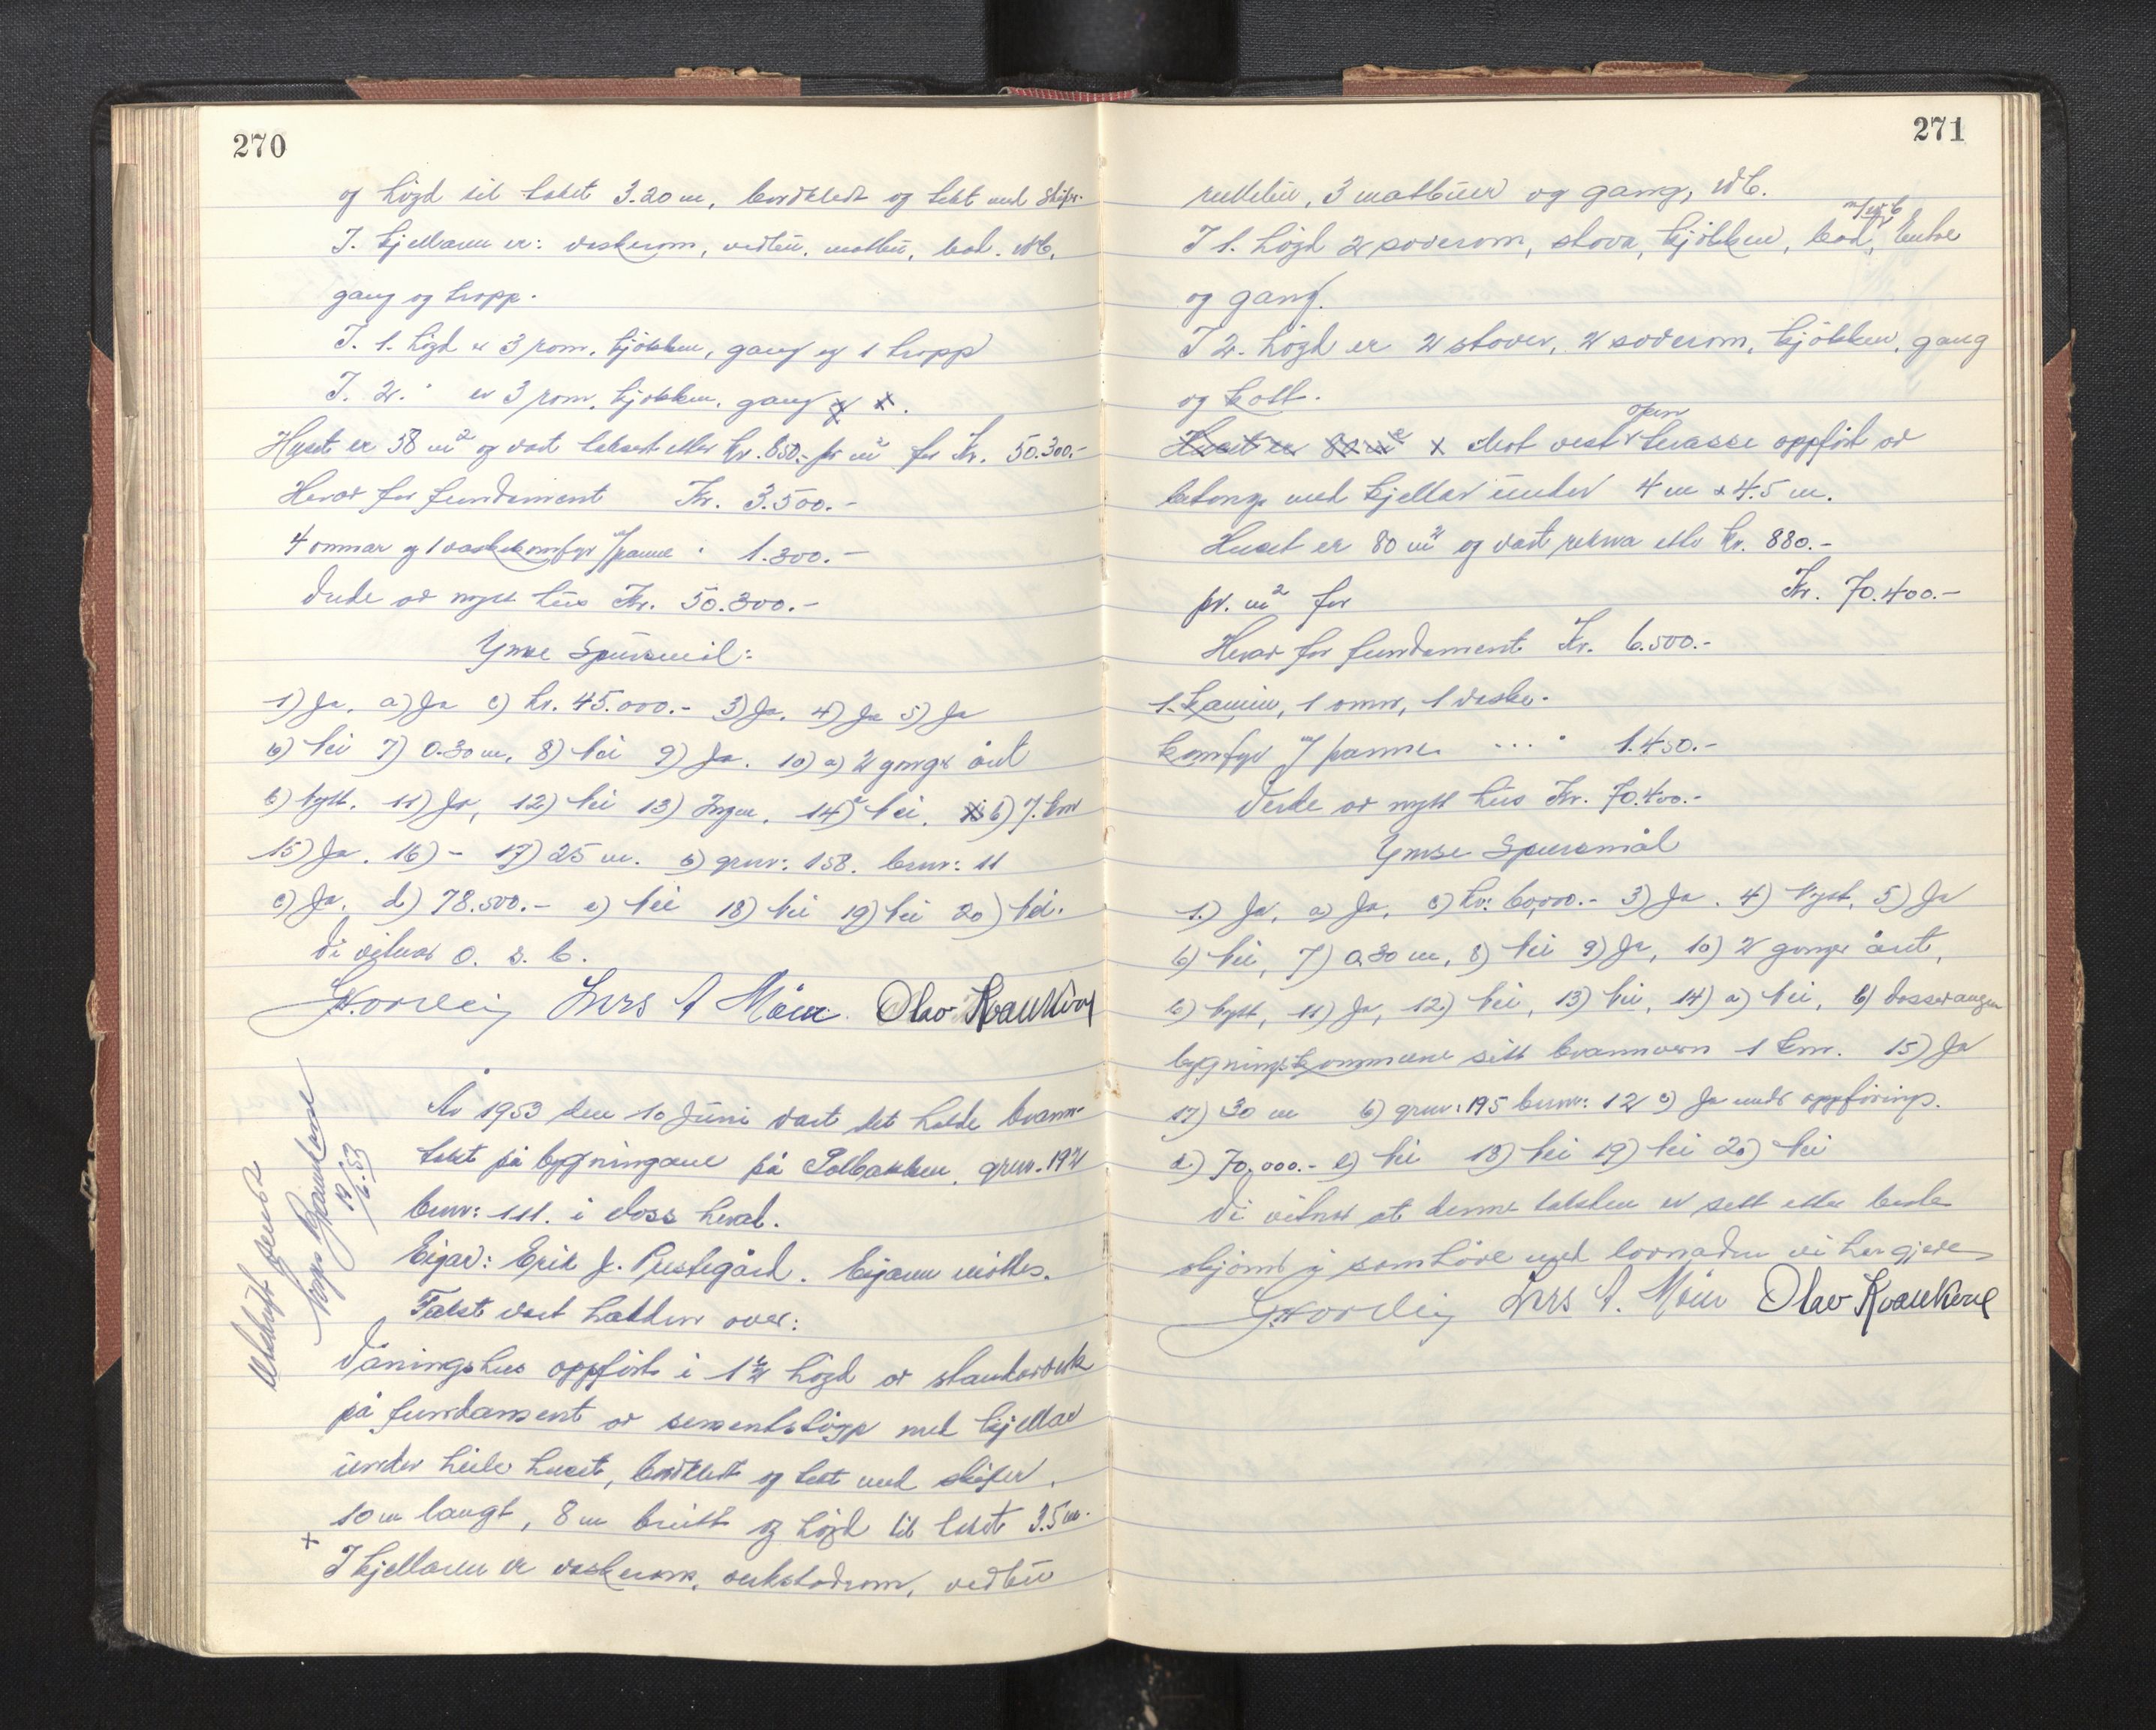 270
og högd til taket 3.20 m, bordkledt og tekt med skifer.
I. kjellaren er: vaskerom, vedbu, matbu, bad. W6,
gang og tropp.
I. 1. högd er 3 rom, kjökken, gang og 1 tropp
I. 2. " er 3 rom, kjökken, gang
Huset er 58 m² og vart taksert etter kr. 850.- pr m² for Kr. 50.300.-
Herav for fundament Kr. 3.500.-
4 omnar og 1 vaskekomfyr m/panne " 1.300.-
Verde av nytt hus Kr. 50.300.-
Ymse Spursmål:
1) Ja. a) Ja c) kr. 45.000.- 3) Ja. 4) Ja 5) Ja
6) Nei 7) 0.30 m, 8) Nei 9) Ja. 10) a) 2 gonger året
b) Nytt. 11) Ja, 12) Nei 13) Ingen. 14) a) Nei. b) 7. km
15) Ja. 16) - 17) 25 m. b) grnr: 158. brnr: 11
c) Ja. d) 78.500.- e) Nei 18) Nei 19) Nei 20) Nei.
Vi vitnar o. s. b.
Lars A Møen Olav Kvankvie
År 1953 den 10 Juni vart det halde brann-
takst på bygningane på Solbakken, grnr. 192
brnr: 111. i Voss herad.
Eigar: Erik J. Prestegård. Eigaren möttes.
Takst vart halden over:
Våningshus oppfört i 1 1/2 högd av stankarverk
på fundament av sementstöyp med kjellar
under heile huset, bordkledt og tekt med skifer,
10 m langt, 8 m breitt og högd til taket 3.5 m.
+
I kjellaren er vaskerom, verkstadrom, vedbu
Utskrift sendt
12/6.53
271
rullebu, 3 matbuer og gang, W6.
I 1. högd 2 soverom, stova, kjökken, bad, m/W6 entre
og gang.
I 2. högd er 2 stover, 2 soverom, kjökken, gang
og kott.
Huset er 80 m² x Mot vest open terasse oppfört av
betong med kjellar under 4 m x 4.5 m.
Huset er 80 m² og vart rekna etter kr. 880.-
pr. m² for Kr. 70.400.-
Herav for fundament Kr. 6.500.-
1. kamin, 1 omn, 1 vaske-
komfyr m/panne ... " 1.450.-
Verde av nytt hus Kr. 70.400.-
Ymse Spursmål
1.) Ja, a) Ja, c) kr: 60,000.- 3) Ja. 4) Nytt, 5) Ja
6) Nei, 7) 0,30 m, 8) Nei 9) Ja, 10) 2 gonger året,
b) Nytt, 11) Ja, 12) Nei, 13) Nei, 14) a) Nei, b) Vossevangen
bygningskommune sitt brannvern 1 km. 15) Ja
17) 30 m b) grnr: 195 brnr: 12 c) Ja under oppföring.
d) 70,000.- e) Nei 18) Nei 19) Nei 20) Nei
Vi vitnar at denne taksten er sett etter beste
skjönn i samhöve med lovnaden vi har gjeve
Lars A. Møen Olav Kvankvie